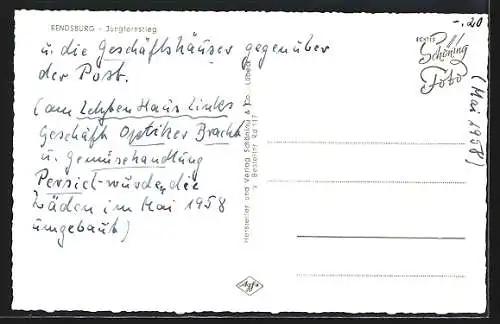 RENDSBURG - Jungfernstieg
u. die Geschäftshäuser gegenüber
der Post.
(am letzten Haus links
Geschäft Optiker Bracht
u. Gemüsehandlung
Persich - wurden die
Läden im Mai 1958
umgebaut)
Hersteller und Verlag Schöning & Co., Lübeck
Bestellnr Rd 117
-.20
ECHTES
Schöning
Foto
(Mai 1958)
Agfa